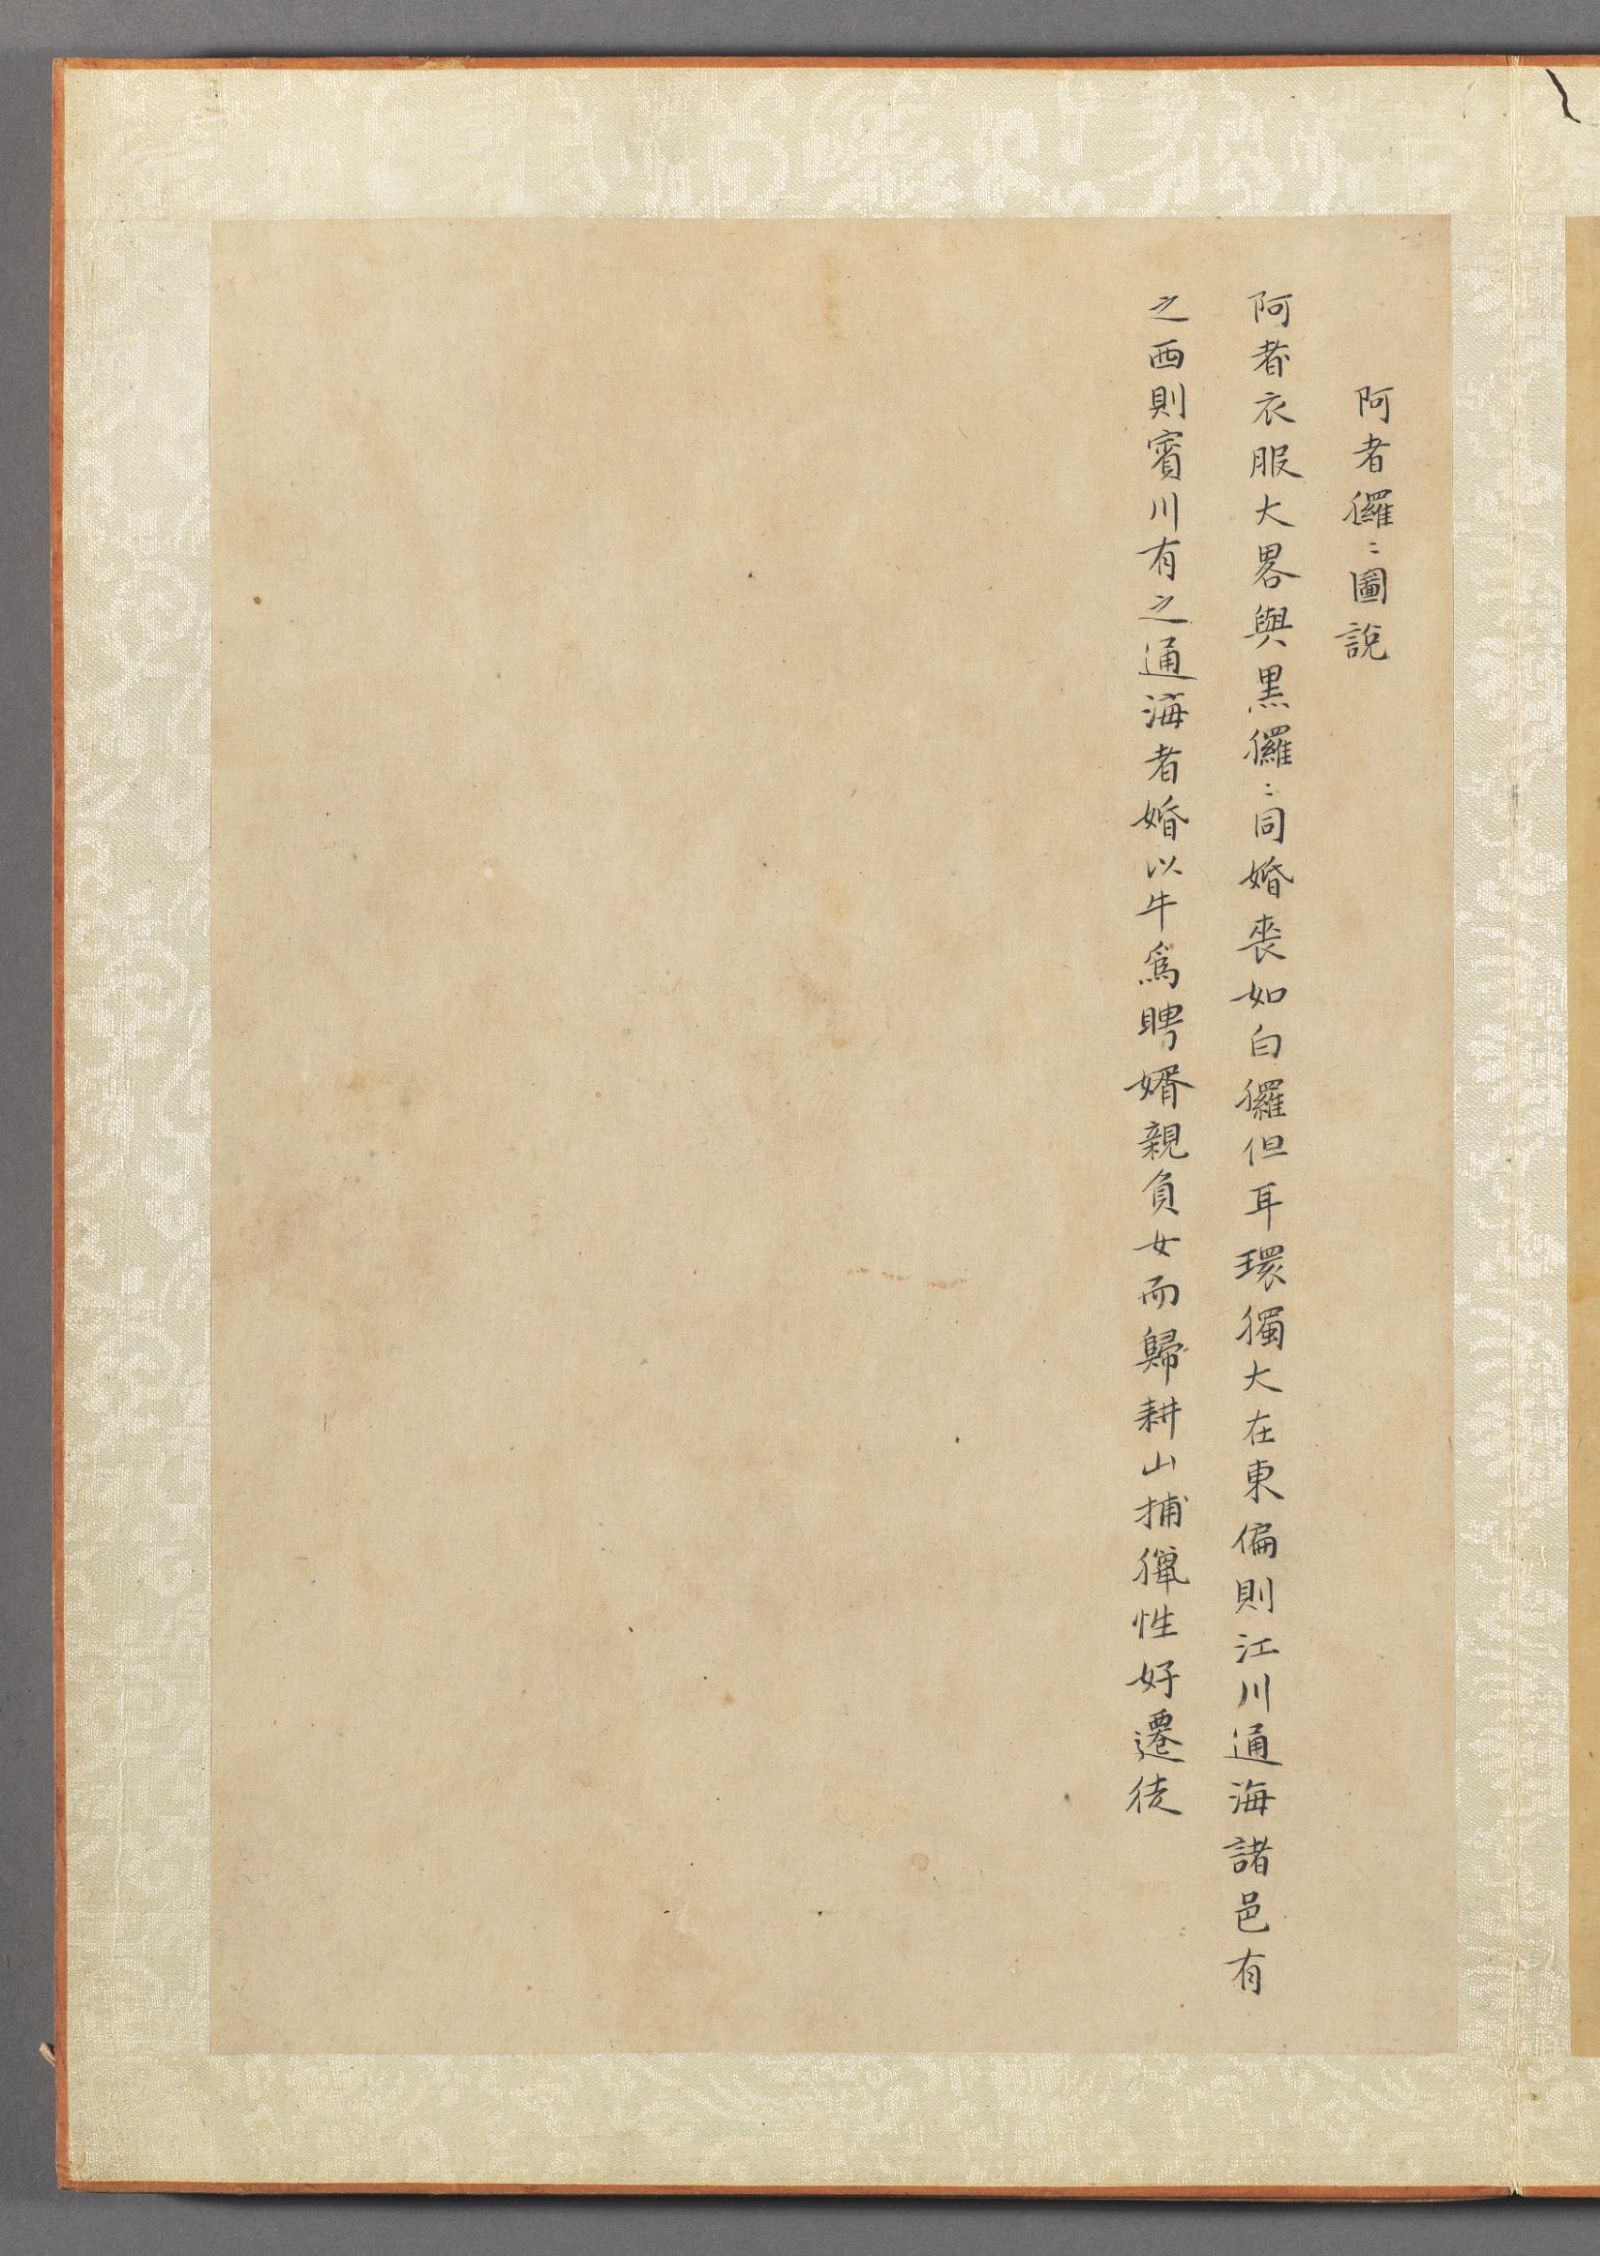 阿者玀〻圖說
阿者衣服大畧與黑玀〻同婚喪如白玀但耳環獨大在東偏則江川通海諸邑有
之西則賓川有之通海者婚以牛爲聘婿親負女而歸耕山捕獵性好遷徙